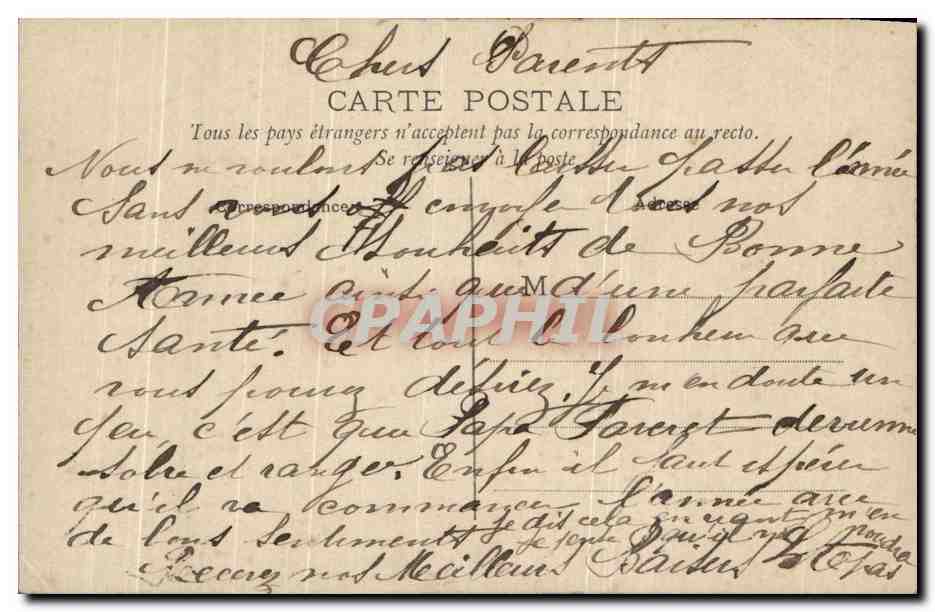 Chers Parents
CARTE POSTALE
Tous les pays étrangers n'acceptent pas la correspondance au recto.
Se renseigner à la poste
Nous ne voulons pas laisser passer l'année
Correspondance
Adresse
Sans vous envoyer nos
meilleurs Souhaits de Bonne
Année ainsi que d'une parfaite
M
CPAPHIL
Santé. Et tout le bonheur que
vous pouvez désirez. Je m'en doute un
peu, c'est que Papa devienne
sobre et ranger. Enfin il faut espérer
qu'il va commancer l'année avec
de bons sentiments
je dis cela en riant m'en
voudra pas
Recevez nos Meilleurs Baisers